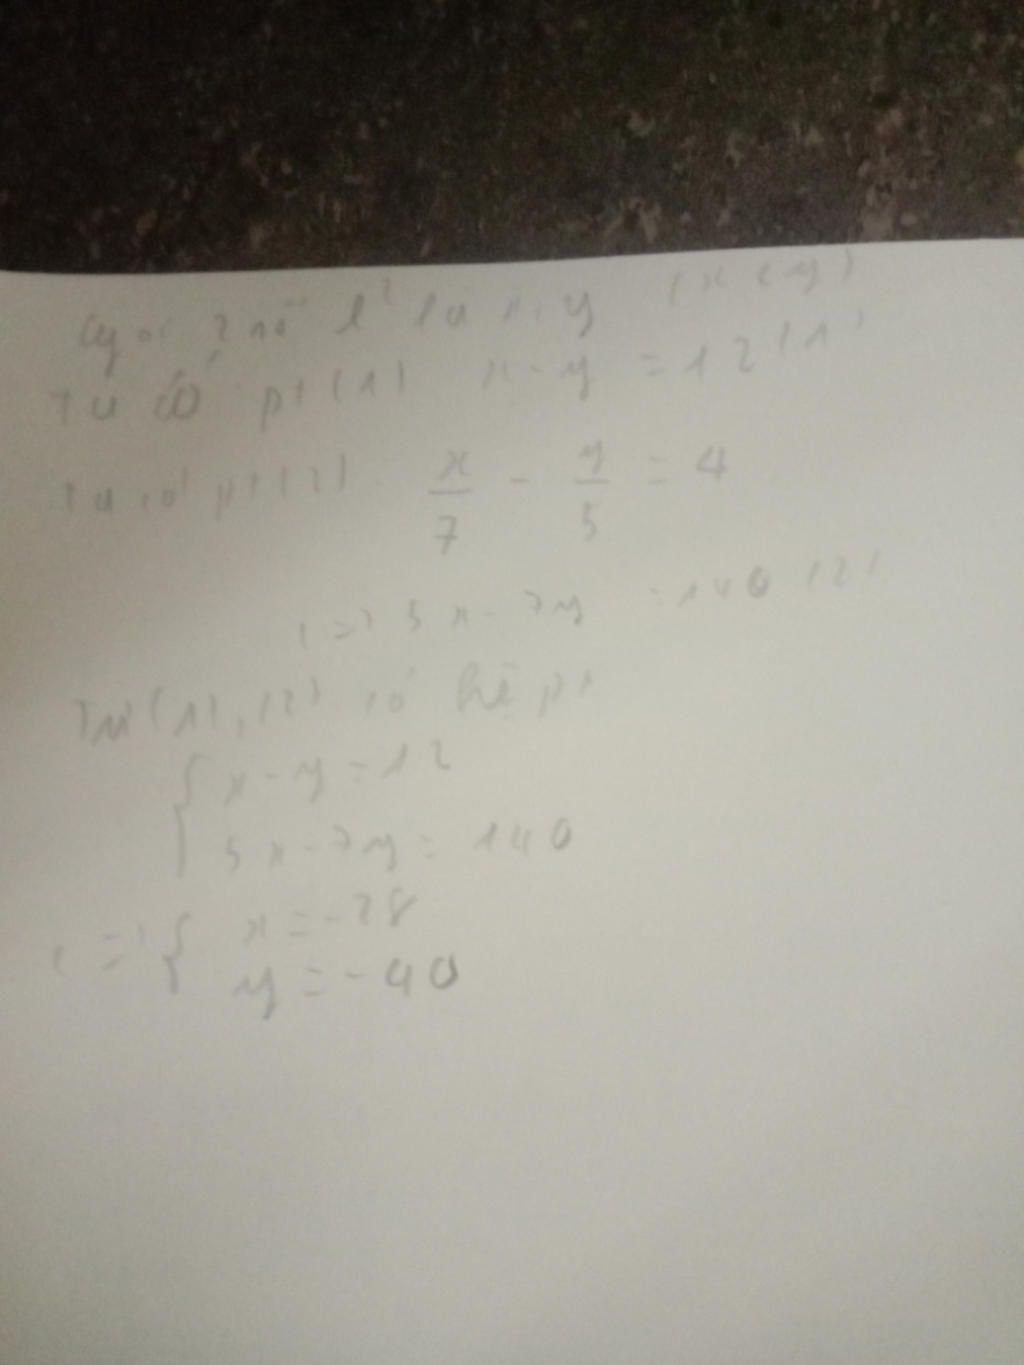 Gọi 2 số là x, y (x < y)
Ta có pt (1) x - y = 12 (1)
Ta có pt (2) x/7 - y/5 = 4
<=> 5x - 7y = 140 (2)
Từ (1), (2) có hệ pt
{ x - y = 12
5x - 7y = 140
<=> { x = -28
y = -40